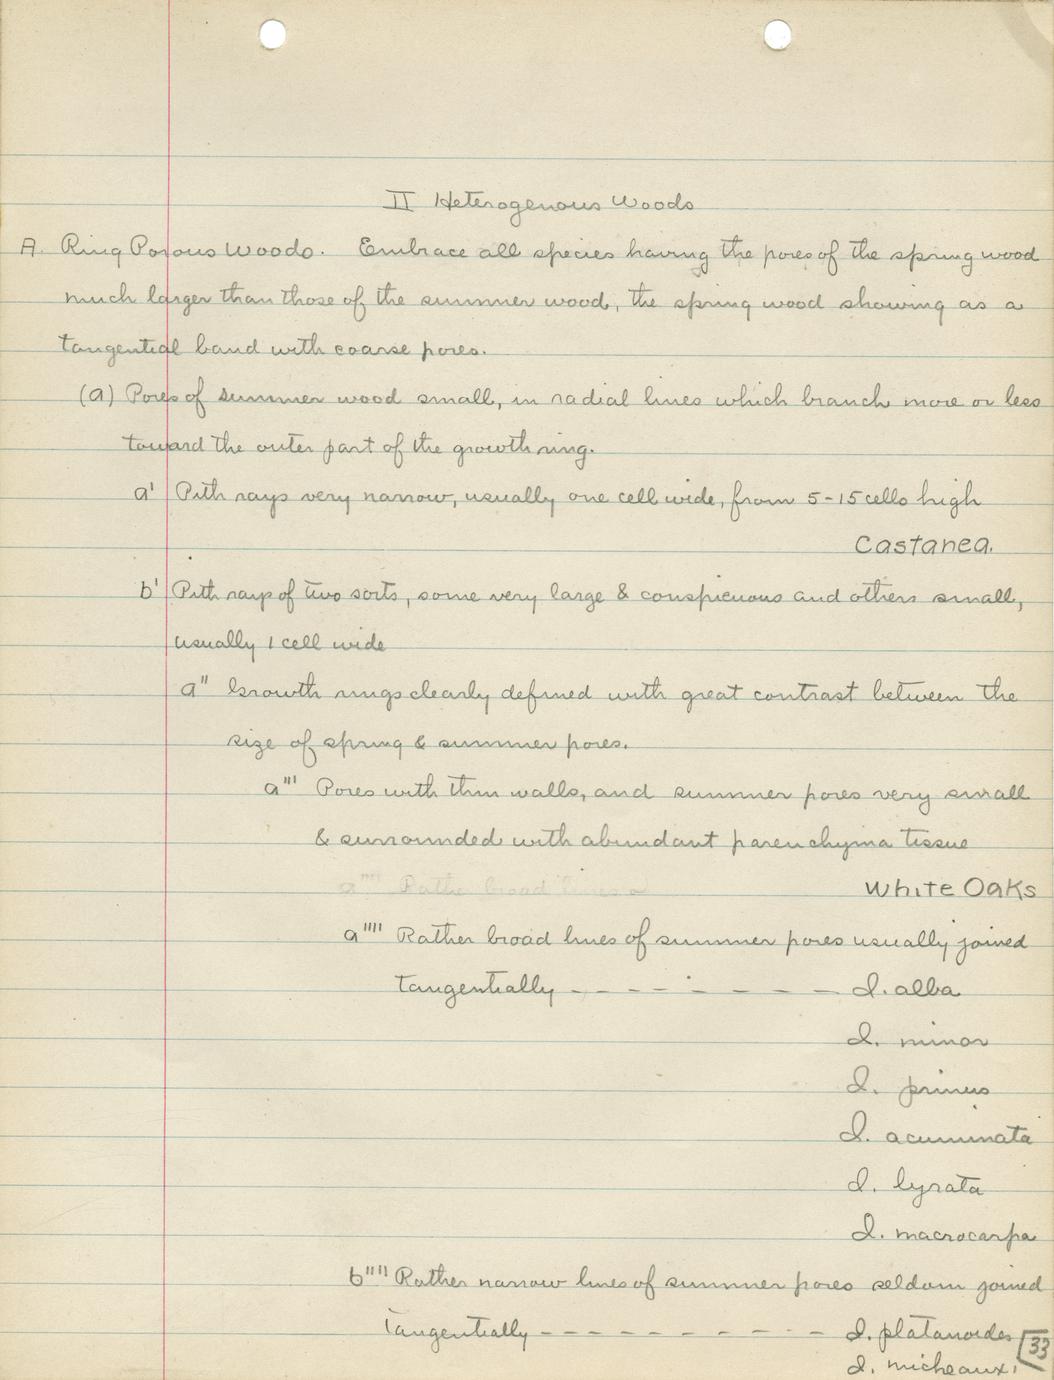 II Heterogenous Woods
A. Ring Porous Woods. Embrace all species having the pores of the spring wood
much larger than those of the summer wood, the spring wood showing as a
tangential band with coarse pores.
(a) Pores of summer wood small, in radial lines which branch more or less
toward the outer part of the growth ring.
a' Pith rays very narrow, usually one cell wide, from 5-15 cells high
Castanea.
b' Pith rays of two sorts, some very large & conspicuous and others small,
usually 1 cell wide
a'' Growth rings clearly defined with great contrast between the
size of spring & summer pores.
a''' Pores with thin walls, and summer pores very small
& surrounded with abundant parenchyma tissue
a'''' Rather broad lines o
White Oaks
a'''' Rather broad lines of summer pores usually joined
tangentially - - - - - - - Q. alba
Q. minor
Q. prinus
Q. acuminata
Q. lyrata
Q. macrocarpa
b'''' Rather narrow lines of summer pores seldom joined
tangentially - - - - - - - - - Q. platanoides
Q. micheauxi
33